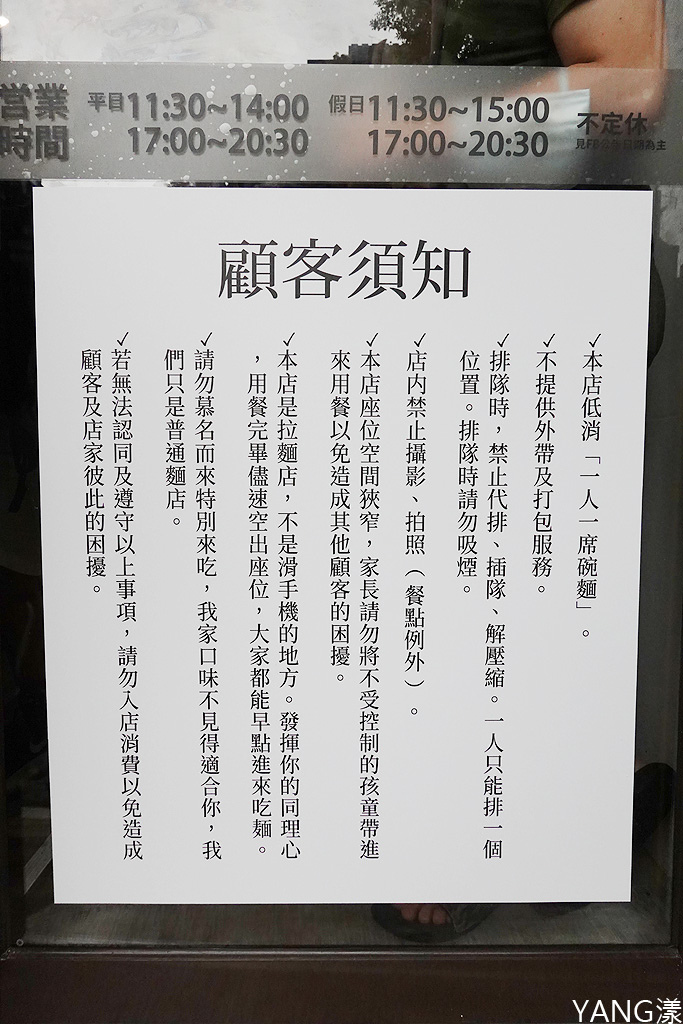 營業時間
平日11:30~14:00
17:00~20:30
假日11:30~15:00
17:00~20:30
不定休
見FB公告日期為主
顧客須知
✓本店低消「一人一席碗麵」。
✓不提供外帶及打包服務。
✓排隊時，禁止代排、插隊、解壓縮。一人只能排一個
位置。排隊時請勿吸煙。
✓店内禁止攝影、拍照（餐點例外）。
✓本店座位空間狹窄，家長請勿將不受控制的孩童帶進
來用餐以免造成其他顧客的困擾。
✓本店是拉麵店，不是滑手機的地方。發揮你的同理心
，用餐完畢儘速空出座位，大家都能早點進來吃麵。
✓請勿慕名而來特別來吃，我家口味不見得適合你，我
們只是普通麵店。
✓若無法認同及遵守以上事項，請勿入店消費以免造成
顧客及店家彼此的困擾。
YANG漾